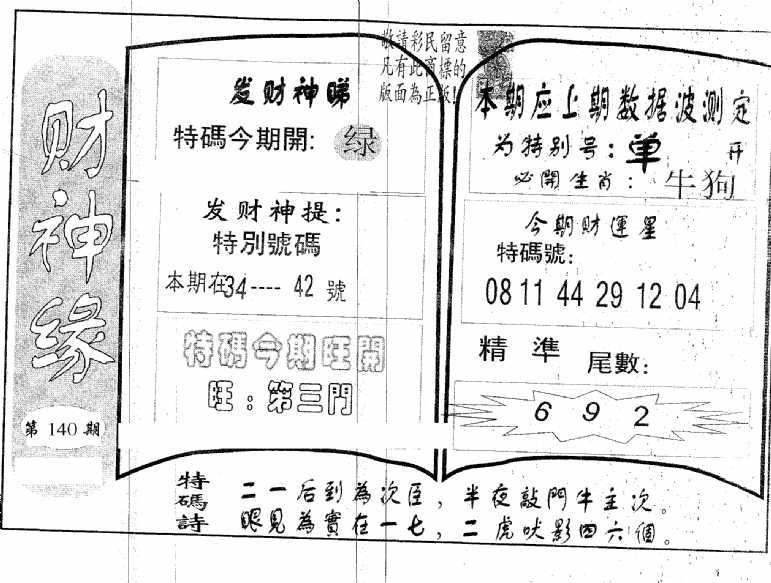 敬請彩民留意
凡有此高標的
版面為正版!
财神缘
第 140 期
发财神睇
特碼今期開: 绿
发财神提:
特別號碼
本期在34----42號
特碼今期旺開
旺:第三門
本期应上期数据波测定
为特别号:单 开
必開生肖: 牛狗
今期财運星
特碼號:
08 11 44 29 12 04
精準 尾數:
6 9 2
特碼詩
二一后到為次臣,半夜敲門牛主次。
眼見為實在一七,二虎吠影四六個。